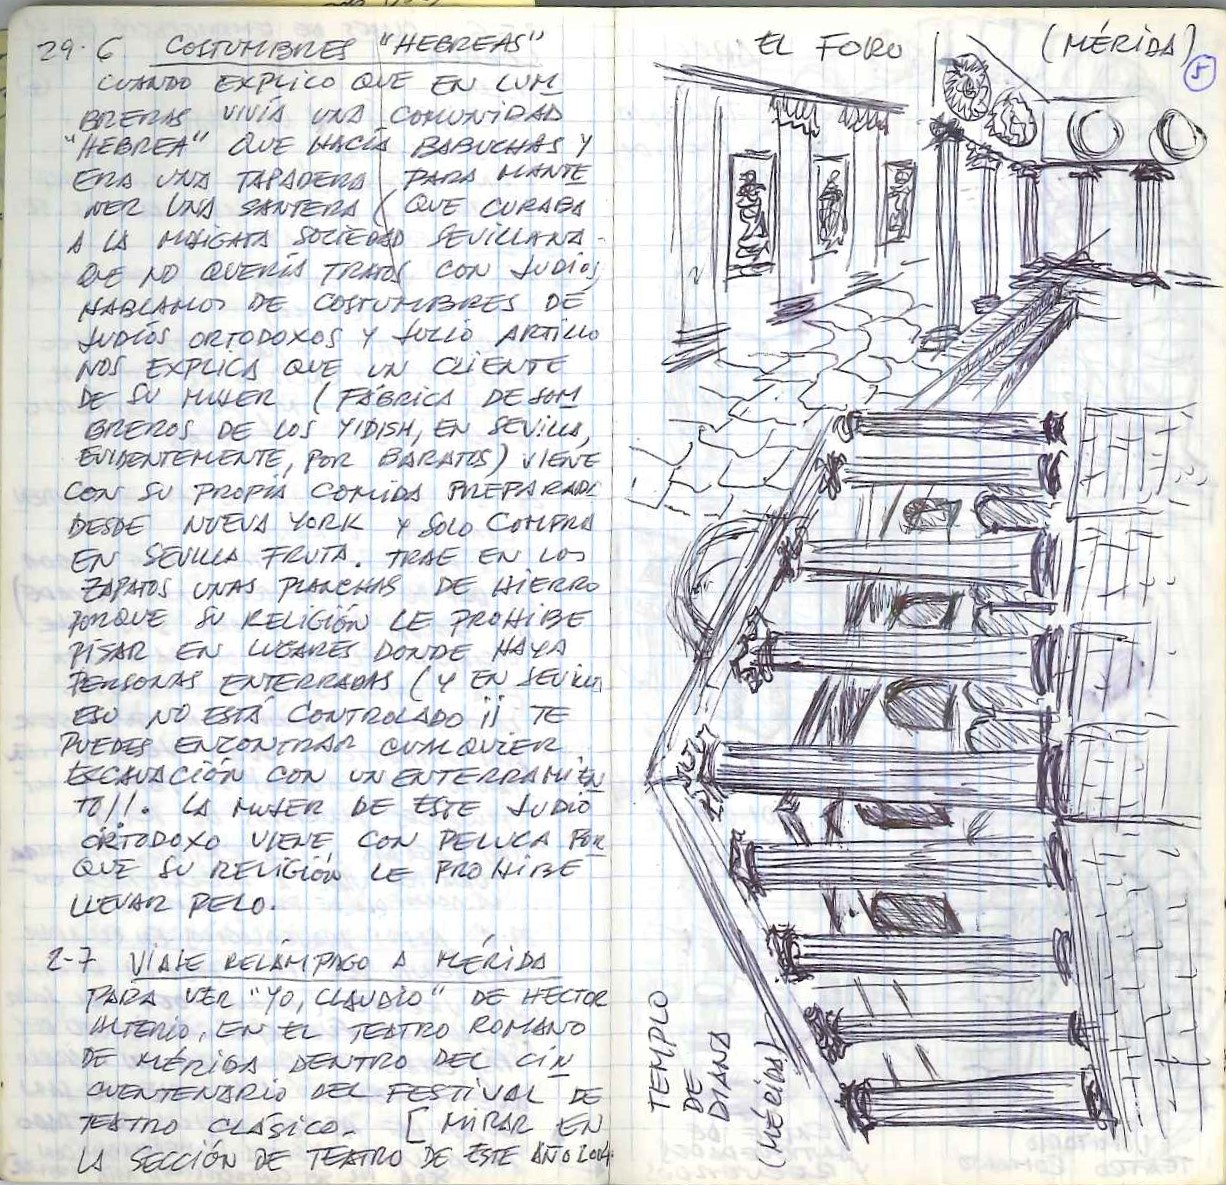 29-6 COSTUMBRES "HEBREAS"
CUANDO EXPLICO QUE EN LUM
BRERAS VIVÍA UNA COMUNIDAD
"HEBREA" QUE HACÍA BABUCHAS Y
ERA UNA TAPADERA PARA MANTE
NER UNA SANTERA (QUE CURABA
A LA MOJIGATA SOCIEDAD SEVILLANA
QUE NO QUERÍA TRATOS CON JUDÍOS
HABLAMOS DE COSTUMBRES DE
JUDÍOS ORTODOXOS Y JULIO ARTILLO
NOS EXPLICA QUE UN CLIENTE
DE SU MUJER (FÁBRICA DE SOM
BREROS DE LOS YIDISH, EN SEVILLA,
EVIDENTEMENTE, POR BARATOS) VIENE
CON SU PROPIA COMIDA PREPARADA
DESDE NUEVA YORK Y SOLO COMPRA
EN SEVILLA FRUTA. TRAE EN LOS
ZAPATOS UNAS PLANCHAS DE HIERRO
PORQUE SU RELIGIÓN LE PROHIBE
PISAR EN LUGARES DONDE HAYA
PERSONAS ENTERRADAS (Y EN SEVILLA
ESO NO ESTÁ CONTROLADO ¡¡ TE
PUEDES ENCONTRAR CUALQUIER
EXCAVACIÓN CON UN ENTERRAMIEN
TO!!. LA MUJER DE ESTE JUDÍO
ORTODOXO VIENE CON PELUCA POR
QUE SU RELIGIÓN LE PROHIBE
LLEVAR PELO.
2-7 VIAJE RELÁMPAGO A MÉRIDA
PARA VER "YO, CLAUDIO" DE HÉCTOR
ALTERIO, EN EL TEATRO ROMANO
DE MÉRIDA DENTRO DEL CIN
CUENTENARIO DEL FESTIVAL DE
TEATRO CLÁSICO. [MIRAR EN
LA SECCIÓN DE TEATRO DE ESTE AÑO 2004
EL FORO (MÉRIDA)
5
TEMPLO
DE
DIANA
(MÉRIDA)